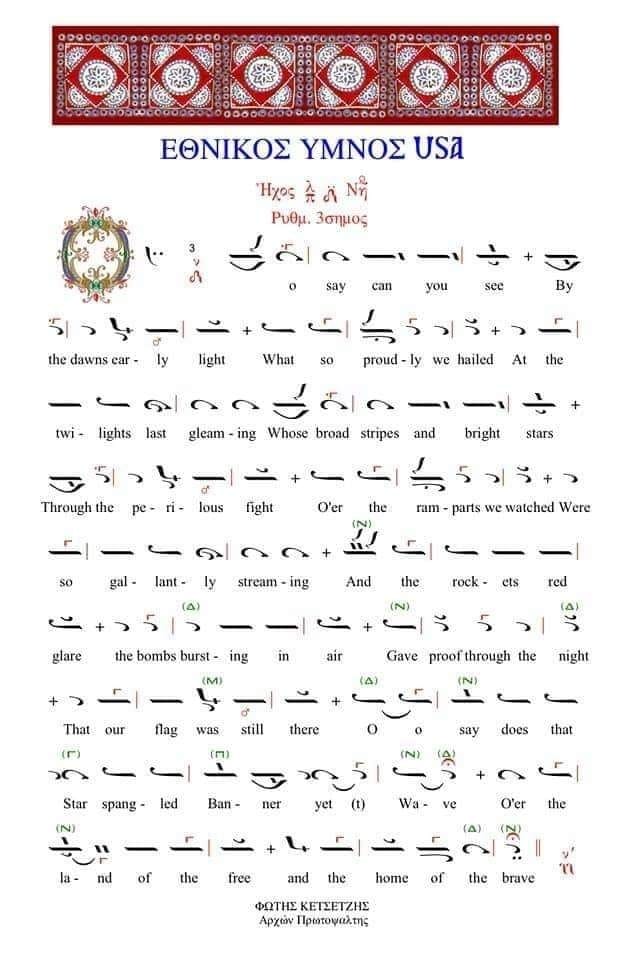 ΕΘΝΙΚΟΣ ΥΜΝΟΣ USA
Ἦχος λ π Νη
Ρυθμ. 3σημος
3
ν
o say can you see By
the dawns ear - ly light What so proud - ly we hailed At the
twi - lights last gleam - ing Whose broad stripes and bright stars
Through the pe - ri - lous fight O'er the ram - parts we watched Were
(Ν)
so gal - lant - ly stream - ing And the rock - ets red
(Δ) (Ν) (Δ)
glare the bombs burst - ing in air Gave proof through the night
(Μ) (Δ) (Ν)
That our flag was still there O o say does that
(Γ) (Π) (Ν) (Δ)
Star spang - led Ban - ner yet (t) Wa - ve O'er the
(Ν) (Δ) (Ν)
la - nd of the free and the home of the brave
ΦΩΤΗΣ ΚΕΤΣΕΤΖΗΣ
Αρχών Πρωτοψαλτης